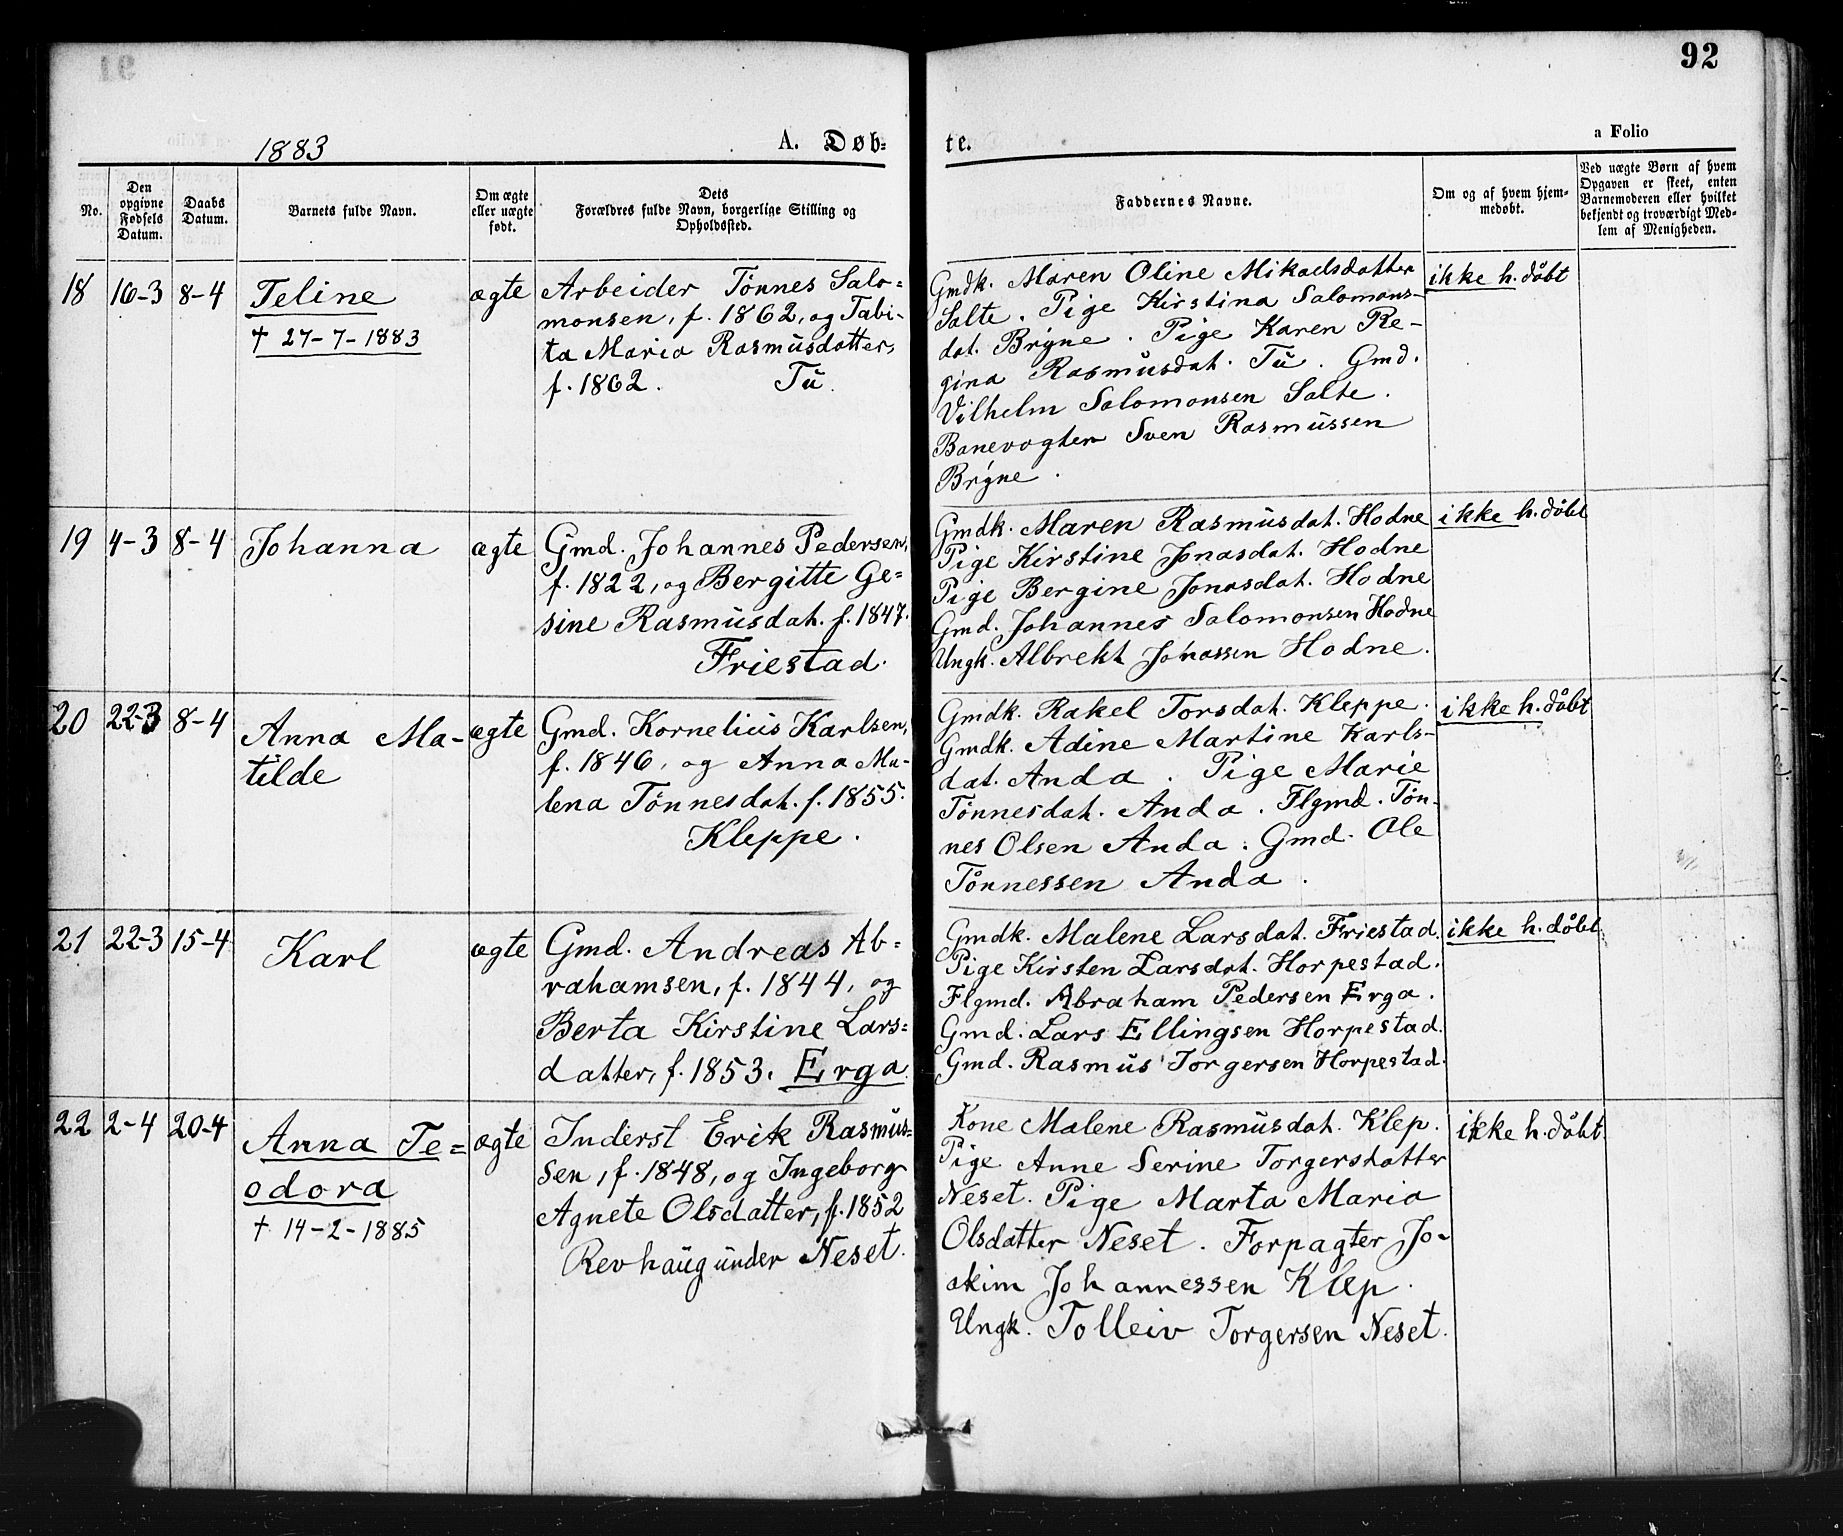 92
1883
A. Døb-
te.
a Folio
No.
Den
opgivne
Fødsels
Datum.
Daabs
Datum.
Barnets fulde Navn.
Om ægte
eller uægte
født.
Dets
Forældres fulde Navn, borgerlige Stilling og
Opholdssted.
Faddernes Navne.
Om og af hvem hjem-
medøbt.
Ved uægte Børn af hvem
Opgaven er skeet, enten
Barnemoderen eller hvilket
bekjendt og troværdigt Med-
lem af Menigheden.
18 16-3 8-4
Teline
† 27-7-1883
ægte
Arbeider Tönnes Salo=
monsen, f. 1862, og Tabi-
ta Maria Rasmusdatter,
f. 1862. Tu.
Gmdk. Maren Oline Mikaelsdatter
Salte. Pige Kirstina Salomons-
dat. Bryne. Pige Karen Re-
gina Rasmusdat. Tu. Gmd.
Vilhelm Salomonsen Salte.
Banevogter Sven Rasmussen
Bryne.
ikke h. döbt
19 4-3 8-4
Johanna
ægte
Gmd. Johannes Pedersen,
f. 1822, og Bergitte Ge=
sine Rasmusdat. f. 1847.
Friestad.
Gmdk. Maren Rasmusdat. Hodne
Pige Kirstine Jonasdat. Hodne
Pige Bergine Jonasdat. Hodne
Gmd. Johannes Salomonsen Hodne
Ungk. Albrekt Jonassen Hodne.
ikke h. döbt
20 22-3 8-4
Anna Ma-
tilde
ægte
Gmd. Kornelius Karlsen,
f. 1846, og Anna Ma-
lena Tönnesdat. f. 1855.
Kleppe.
Gmdk. Rakel Torsdat. Kleppe.
Gmdk. Adine Martine Karls-
dat. Anda. Pige Marie
Tönnesdat. Anda. Flgmd. Tön-
nes Olsen Anda. Gmd. Ole
Tönnessen Anda.
ikke h. döbt
21 22-3 15-4
Karl
ægte
Gmd. Andreas Ab=
rahamsen, f. 1844, og
Berta Kirstine Lars=
datter, f. 1853. Erga.
Gmdk. Malene Larsdat. Friestad.
Pige Kirsten Larsdat. Horpestad.
Flgmd. Abraham Pedersen Erga.
Gmd. Lars Ellingsen Horpestad.
Gmd. Rasmus Torgersen Horpestad.
ikke h. döbt.
22 2-4 20-4
Anna Te=
odora
† 14-2-1885
ægte
Inderst Erik Rasmus=
sen, f. 1848, og Ingeborg
Agnete Olsdatter, f. 1852
Revhaug under Neset.
Kone Malene Rasmusdat. Klep.
Pige Anne Serine Torgersdatter
Neset. Pige Marta Maria
Olsdatter Neset. Forpagter Jo-
akim Johannessen Klep.
Ungk. Tolleiv Torgersen Neset.
ikke h. döbt